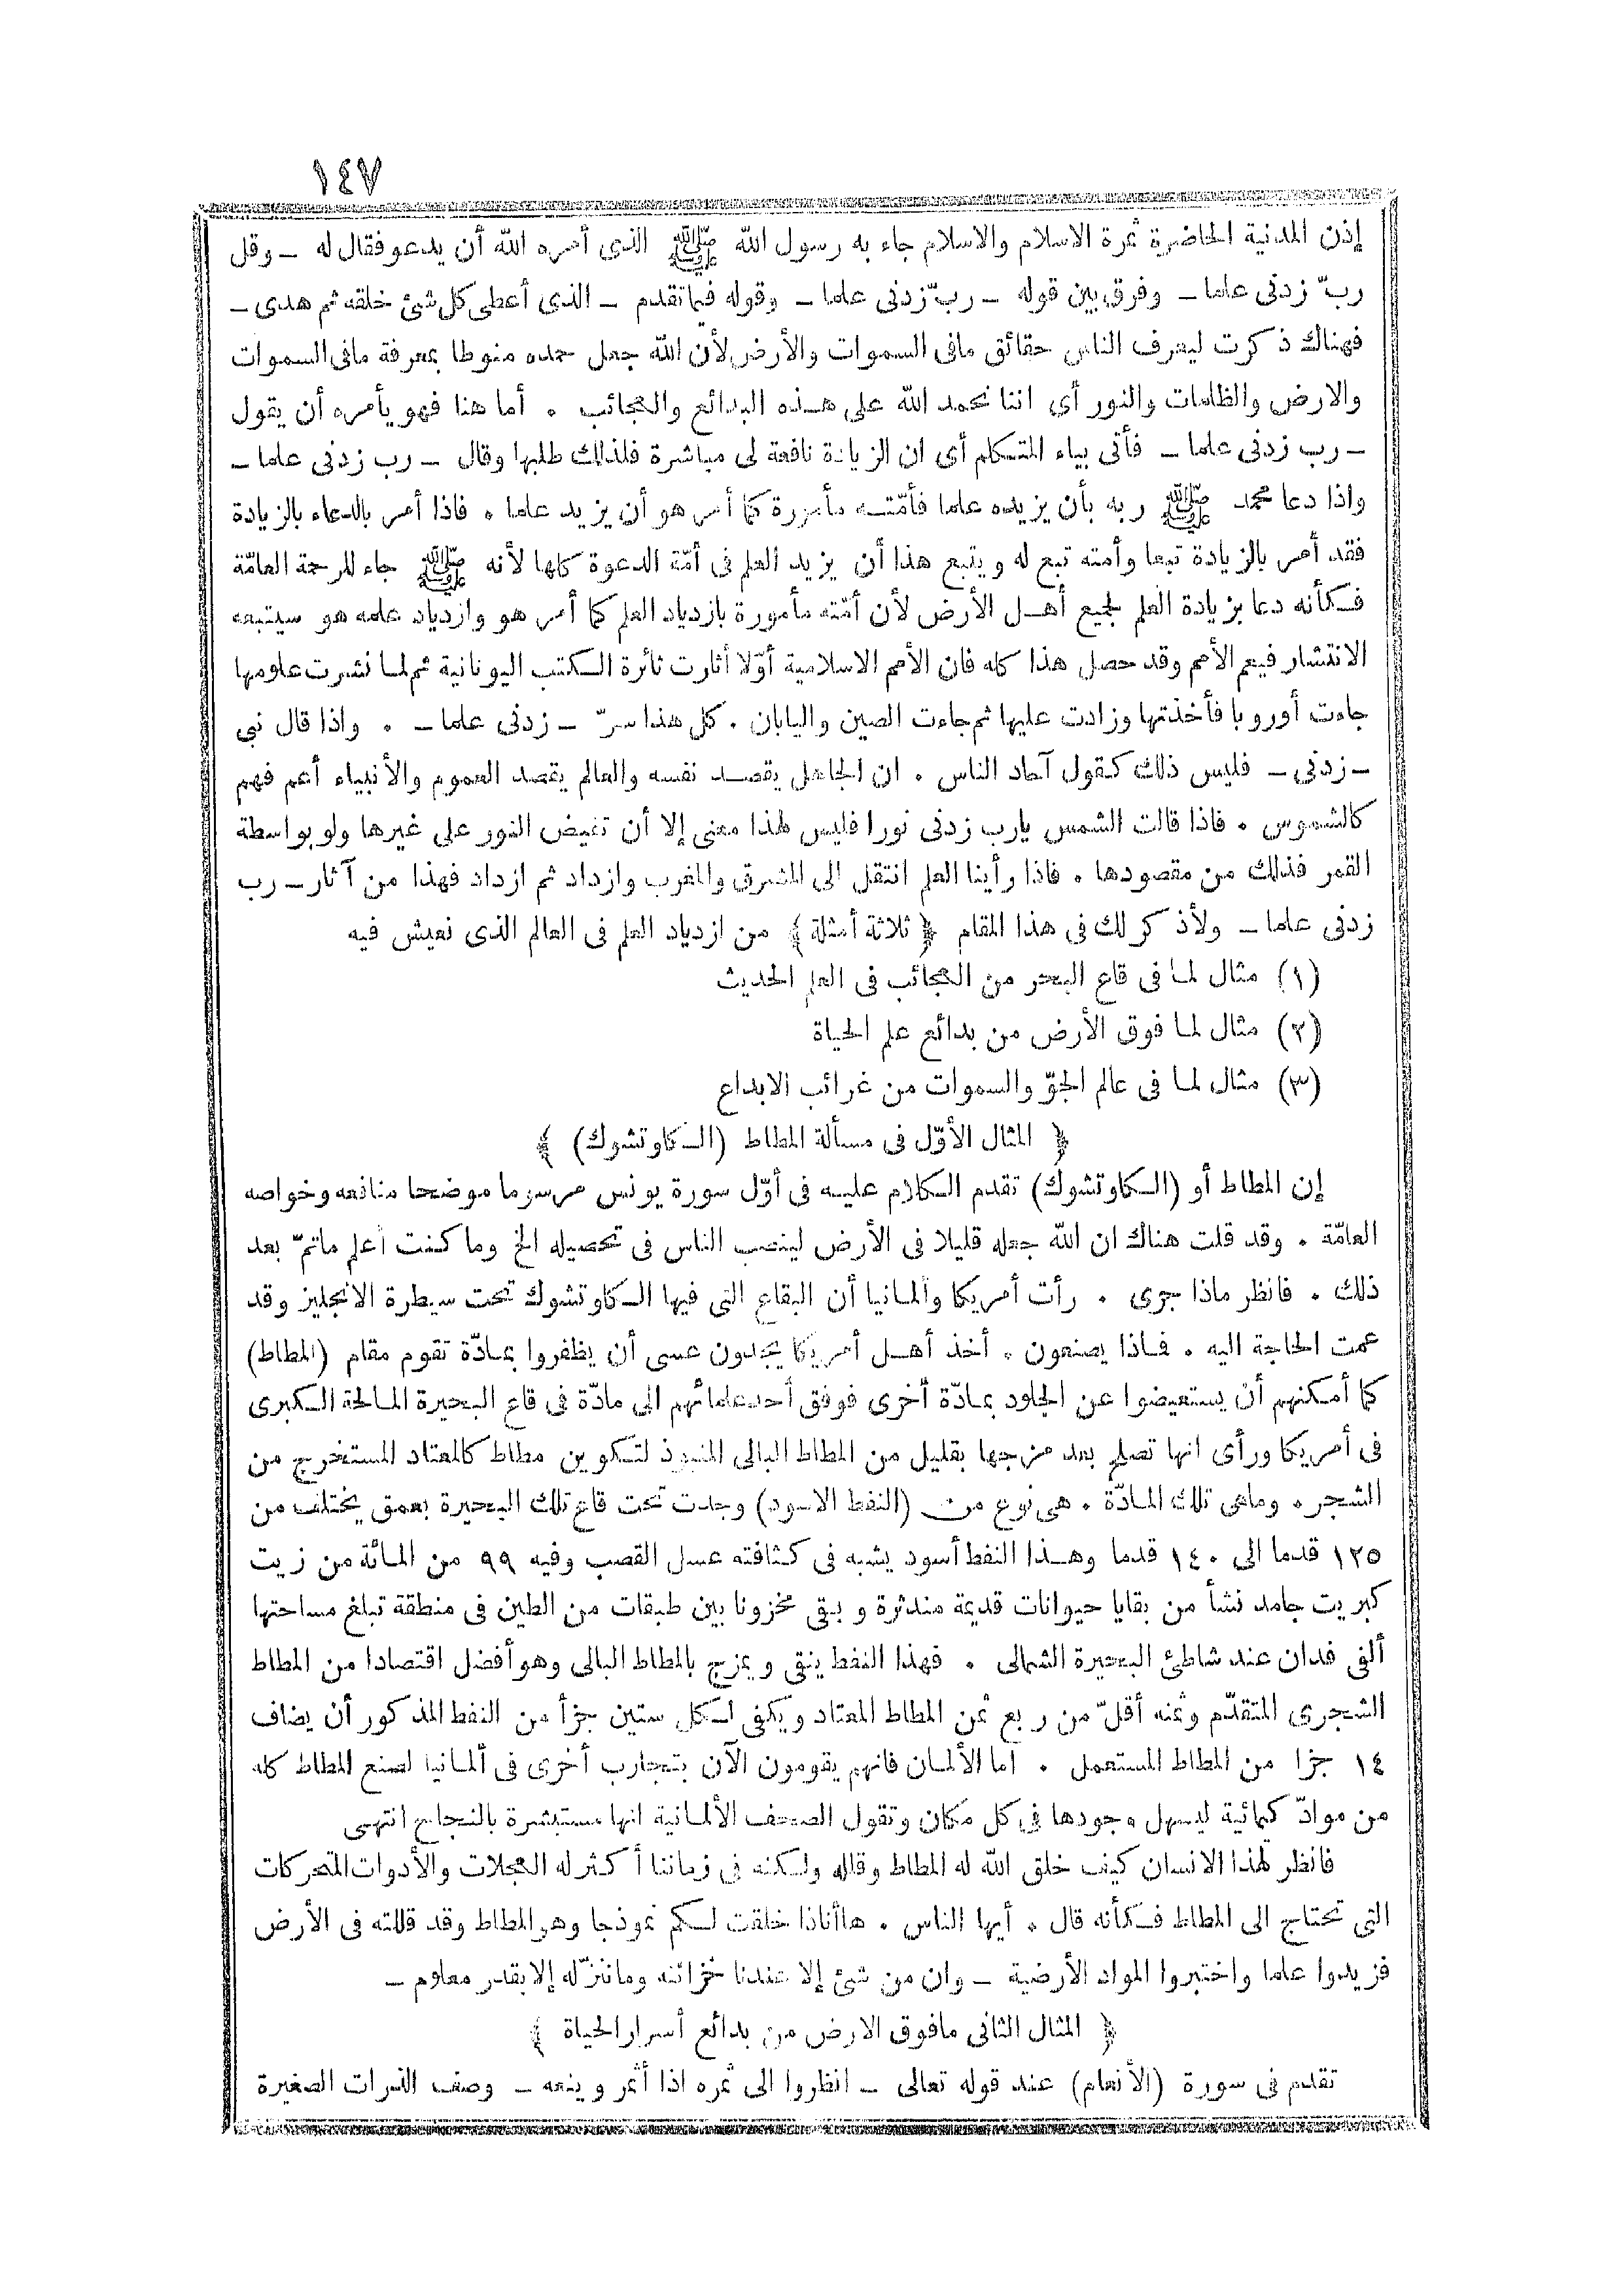 ١٤٧
إذن المدنية الحاضرة ثمرة الاسلام والاسلام جاء به رسول الله ﷺ الذى أمره الله أن يدعو فقال له ــ وقل
ربّ زدنى علما ــ وفرق بين قوله ــ ربّ زدنى علما ــ وقوله فيما تقدم ــ الذى أعطى كل شئ خلقه ثم هدى ــ
فهناك ذكرت ليعرف الناس حقائق مافى السموات والأرض لأن الله جعل حمده منوطا بمعرفة مافى السموات
والارض والظلمات والنور أى اننا نحمد الله على هـذه البدائع والعجائب . أما هنا فهو يأمره أن يقول
ــ رب زدنى علما ــ فأتى بياء المتكلم أى ان الزيادة نافعة لى مباشرة فلذلك طلبها وقال ــ رب زدنى علما ــ
واذا دعا محمد ﷺ ربه بأن يزيده علما فأمّتـه مأمورة كما أمر هو أن يزيد علما . فاذا أمر بالدعاء بالزيادة
فقد أمر بالزيادة تبعا وأمته تبع له ويتبع هذا أن يزيد العلم فى أمّة الدعوة كلها لأنه ﷺ جاء للرحمة العامّة
فـكأنه دعا بزيادة العلم لجميع أهـل الأرض لأن أمّته مأمورة بازدياد العلم كما أمر هو وازدياد علمه هو سيتبعه
الانتشار فيعم الأمم وقد حصل هذا كله فان الأمم الاسلامية أوّلا أثارت ثائرة الـكتب اليونانية ثم لما نشرت علومها
جاءت أوروبا فأخذتها وزادت عليها ثم جاءت الصين واليابان . كل هذا سرّ ــ زدنى علما ــ . واذا قال نبى
ــ زدنى ــ فليس ذلك كقول آحاد الناس . ان الجاهل يقصـد نفسه والعالم يقصد العموم والأنبياء أعم فهم
كالشموس . فاذا قالت الشمس يارب زدنى نورا فليس لهذا معنى إلا أن تفيض النور على غيرها ولو بواسطة
القمر فذلك من مقصودها . فاذا رأينا العلم انتقل الى المشرق والمغرب وازداد ثم ازداد فهذا من آثار ــ رب
زدنى علما ــ ولأذكر لك فى هذا المقام ﴿ ثلاثة أمثلة ﴾ من ازدياد العلم فى العالم الذى نعيش فيه
(١) مثال لما فى قاع البحر من العجائب فى العلم الحديث
(٢) مثال لما فوق الأرض من بدائع علم الحياة
(٣) مثال لما فى عالم الجوّ والسموات من غرائب الابداع
﴿ المثال الأوّل فى مسألة المطاط (الـكاوتشوك) ﴾
إن المطاط أو (الـكاوتشوك) تقدم الـكلام عليـه فى أوّل سورة يونس مرسوما موضحا منافعه وخواصه
العامّة . وقد قلت هناك ان الله جعله قليلا فى الأرض لينصب الناس فى تحصيله الخ وما كنت أعلم ماتمّ بعد
ذلك . فانظر ماذا جرى . رأت أمريكا وألمانيا أن البقاع التى فيها الـكاوتشوك تحت سيطرة الانجليز وقد
عمت الحاجة اليه . فماذا يصنعون . أخذ أهـل أمريكا يجدون عسى أن يظفروا بمادّة تقوم مقام (المطاط)
كما أمـكنهم أن يستعيضوا عن الجلود بمادّة أخرى فوفق أحد علمائهم الى مادّة فى قاع البحيرة المالحة الـكبرى
فى أمريكا ورأى انها تصلح بعد مزجها بقليل من المطاط البالى المنبوذ لتـكوين مطاط كالمعتاد المستخرج من
الشجر . وماهى تلك المادّة . هى نوع من (النفط الاسود) وجدت تحت قاع تلك البحيرة بعمق يختلف من
١٢٥ قدما الى ١٤٠ قدما وهـذا النفط أسود يشبه فى كثافته عسل القصب وفيه ٩٩ من المائة من زيت
كبريت جامد نشأ من بقايا حيوانات قديمة مندثرة وبقى مخزونا بين طبقات من الطين فى منطقة تبلغ مساحتها
ألفى فدان عند شاطئ البحيرة الشمالى . فهذا النفط ينقى ويمزج بالمطاط البالى وهو أفضل اقتصادا من المطاط
الشجرى المتقدّم وثمنه أقلّ من ربع ثمن المطاط المعتاد ويكفى لـكل ستين جزأ من النفط المذكور أن يضاف
١٤ جزا من المطاط المستعمل . اما الألمان فانهم يقومون الآن بتجارب أخرى فى ألمانيا لصنع المطاط كله
من موادّ كيمائية ليسهل وجودها فى كل مكان وتقول الصحف الألمانية انها مستبشرة بالنجاح انتهى
فانظر لهذا الانسان كيف خلق الله له المطاط وقلله ولـكنه فى زماننا أكثر له العجلات والأدوات المتحركات
التى تحتاج الى المطاط فـكأنه قال . أيها الناس . هاأناذا خلقت لـكم نموذجا وهو المطاط وقد قللته فى الأرض
فزيدوا علما واختبروا المواد الأرضية ــ وان من شئ إلا عندنا خزائنه وماننزّله إلا بقدر معلوم ــ
﴿ المثال الثانى مافوق الارض من بدائع أسرار الحياة ﴾
تقدم فى سورة (الأنعام) عند قوله تعالى ــ انظروا الى ثمره اذا أثمر وينعه ــ وصف الذرات الصغيرة